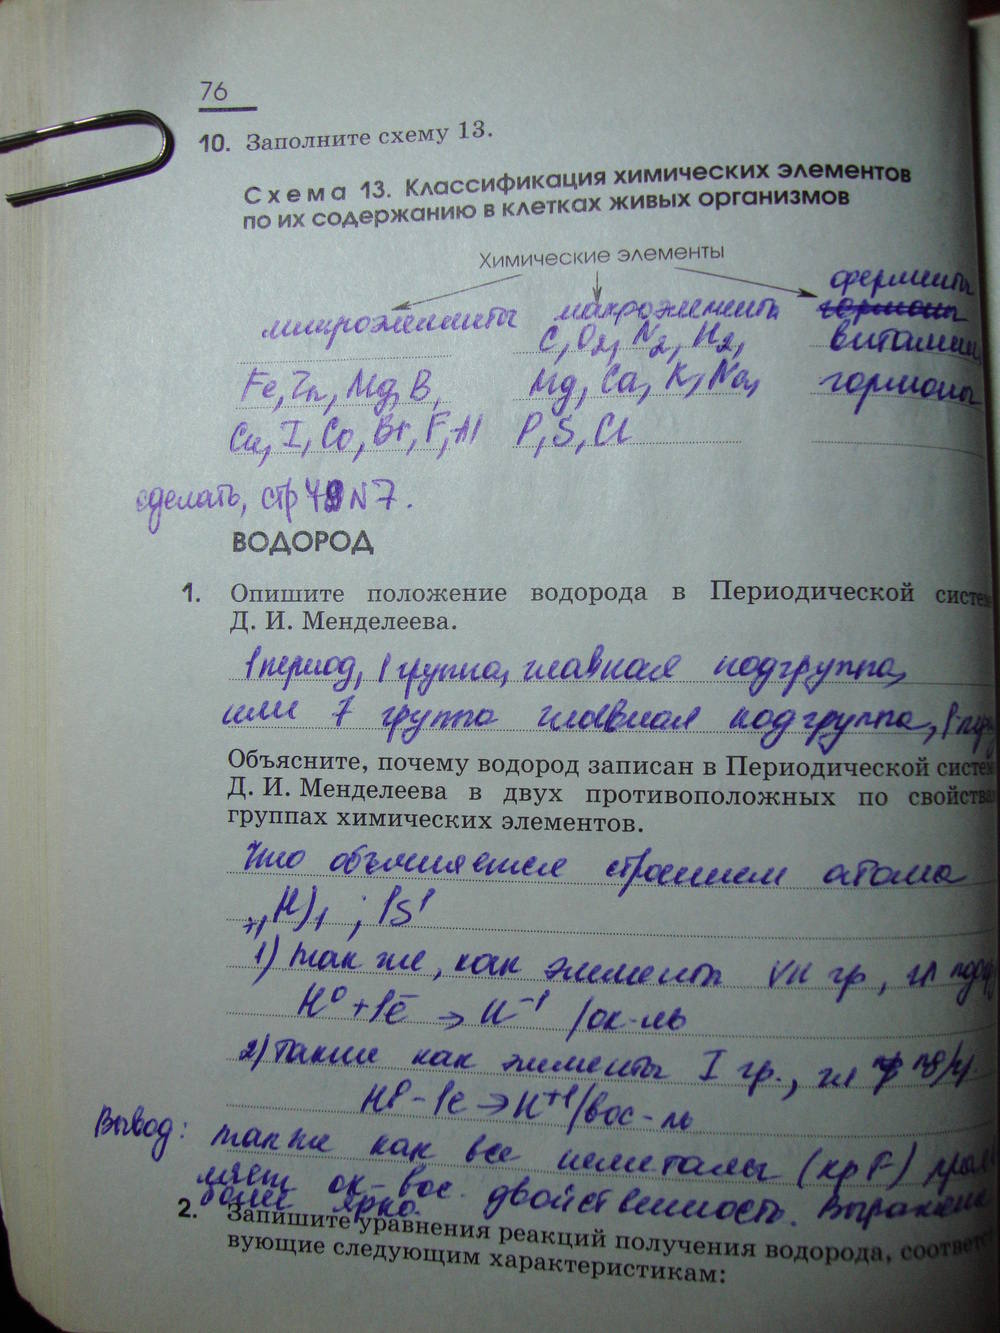 76
10. Заполните схему 13.
Схема 13. Классификация химических элементов
по их содержанию в клетках живых организмов
Химические элементы
микроэлементы макроэлементы ферменты
C, O2, N2, H2, витамины,
Fe, Zn, Mg, B, Mg, Ca, K, Na, гормоны
Cu, I, Co, Br, F, Al P, S, Cl
сделать, стр N 7.
ВОДОРОД
1. Опишите положение водорода в Периодической систем
Д. И. Менделеева.
1 период, 1 группа, главная подгруппа,
или 7 группа главная подгруппа, 1 пери
Объясните, почему водород записан в Периодической систем
Д. И. Менделеева в двух противоположных по свойства
группах химических элементов.
Это объясняется строением атома
+1H)1 ; 1S1
1) так же, как элементы VII гр, гл подгр
H0 + 1ē → H-1 /ок-ль
2) также как элементы I гр., гл п/гр.
H0 - 1ē → H+1 /вос-ль
Вывод: также как все неметаллы (кр F) прояв
ляет ок-вос двойственность. Выражена
более ярко.
2. Запишите уравнения реакций получения водорода, соответст
вующие следующим характеристикам: